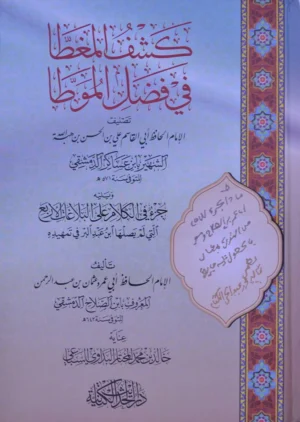 كشف المغطا
في فضل الموطا
تصنيف
الإمام الحافظ أبي القاسم علي بن الحسن بن هبة الله
الشهير بابن عساكر الدمشقي
المتوفى سنة ٥٧١ هـ
ويليه
جزء في الكلام على البلاغات الأربع
التي لم يصلها ابن عبد البر في تمهيده
تأليف
الإمام الحافظ أبي عمرو عثمان بن عبد الرحمن
المعروف بابن الصلاح الدمشقي
المتوفى سنة ٦٤٣ هـ
عناية
خالد بن محمد المختار البداوي السباعي
دار الحديث الكتانية